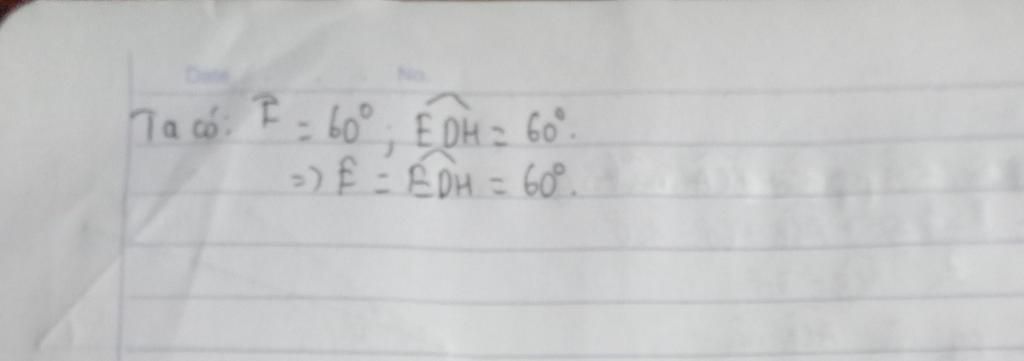 Date No.
Ta có: F̂ = 60°; \widehat{EDH} = 60°.
=> F̂ = \widehat{EDH} = 60°.